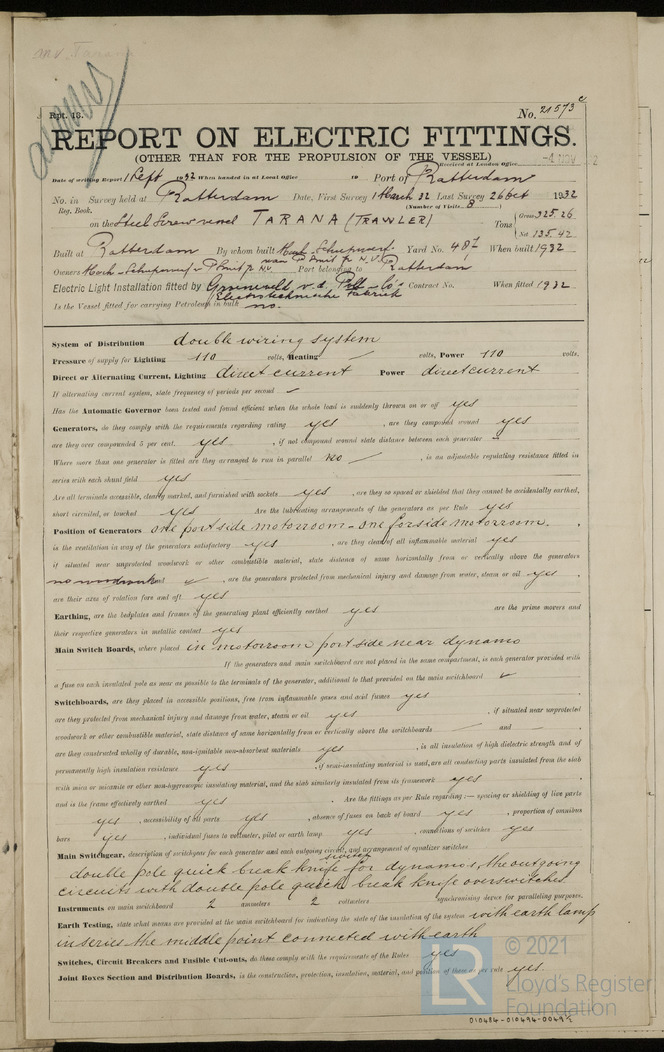 m.v. Tarana
Rpt. 13. No. 21573
REPORT ON ELECTRIC FITTINGS.
(OTHER THAN FOR THE PROPULSION OF THE VESSEL)
Received at London Office
Date of writing Report 1 Sept 1932 When handed in at Local Office 19 Port of Rotterdam
No. in Survey held at Rotterdam Date, First Survey 1 March 32 Last Survey 26 Oct 1932
Reg. Book. (Number of Visits 8)
on the Steel Screw vessel TARANA (TRAWLER) Tons Gross 325.26 Net 135.42
Built at Rotterdam By whom built Yard No. 487 When built 1932
Owners Port belonging to Rotterdam
Electric Light Installation fitted by Contract No. When fitted 1932
Electrotechnische Fabriek
Is the Vessel fitted for carrying Petroleum in bulk no.
System of Distribution double wiring system
Pressure of supply for Lighting 110 volts, Heating — volts, Power 110 volts.
Direct or Alternating Current, Lighting direct current Power direct current
If alternating current system, state frequency of periods per second
Has the Automatic Governor been tested and found efficient when the whole load is suddenly thrown on or off yes
Generators, do they comply with the requirements regarding rating yes , are they compound wound yes
are they over compounded 5 per cent. yes , if not compound wound state distance between each generator —
Where more than one generator is fitted are they arranged to run in parallel no — , is an adjustable regulating resistance fitted in
series with each shunt field yes
Are all terminals accessible, clearly marked, and furnished with sockets yes , are they so spaced or shielded that they cannot be accidentally earthed,
short circuited, or touched yes Are the lubricating arrangements of the generators as per Rule yes
Position of Generators one port side motorroom - one forside motorroom.
is the ventilation in way of the generators satisfactory yes , are they clear of all inflammable material yes
if situated near unprotected woodwork or other combustible material, state distance of same horizontally from or vertically above the generators
no woodwork and ✓ , are the generators protected from mechanical injury and damage from water, steam or oil yes
are their axes of rotation fore and aft yes
Earthing, are the bedplates and frames of the generating plant efficiently earthed yes are the prime movers and
their respective generators in metallic contact yes
Main Switch Boards, where placed in motorroom port side near dynamo
If the generators and main switchboard are not placed in the same compartment, is each generator provided with
a fuse on each insulated pole as near as possible to the terminals of the generator, additional to that provided on the main switchboard ✓
Switchboards, are they placed in accessible positions, free from inflammable gases and acid fumes yes
are they protected from mechanical injury and damage from water, steam or oil yes , if situated near unprotected
woodwork or other combustible material, state distance of same horizontally from or vertically above the switchboards — and —
are they constructed wholly of durable, non-ignitable non-absorbent materials yes , is all insulation of high dielectric strength and of
permanently high insulation resistance yes , if semi-insulating material is used, are all conducting parts insulated from the slab
with mica or micanite or other non-hygroscopic insulating material, and the slab similarly insulated from its framework yes
and is the frame effectively earthed yes . Are the fittings as per Rule regarding:— spacing or shielding of live parts
yes , accessibility of all parts yes , absence of fuses on back of board yes , proportion of omnibus
bars yes , individual fuses to voltmeter, pilot or earth lamp yes , connections of switches yes
Main Switchgear, description of switchgear for each generator and each outgoing circuit, and arrangement of equalizer switches
double pole quick break knife switch for dynamos, the outgoing
circuits with double pole quick break knife overswitches
Instruments on main switchboard 2 ammeters 2 voltmeters synchronising device for paralleling purposes.
Earth Testing, state what means are provided at the main switchboard for indicating the state of the insulation of the system with earth lamp
in series the middle point connected with earth
Switches, Circuit Breakers and Fusible Cut-outs, do these comply with the requirements of the Rules yes
Joint Boxes Section and Distribution Boards, is the construction, protection, insulation, material, and position of these as per rule yes.
LR © 2021
Lloyd's Register
Foundation
010484-010494-0049½